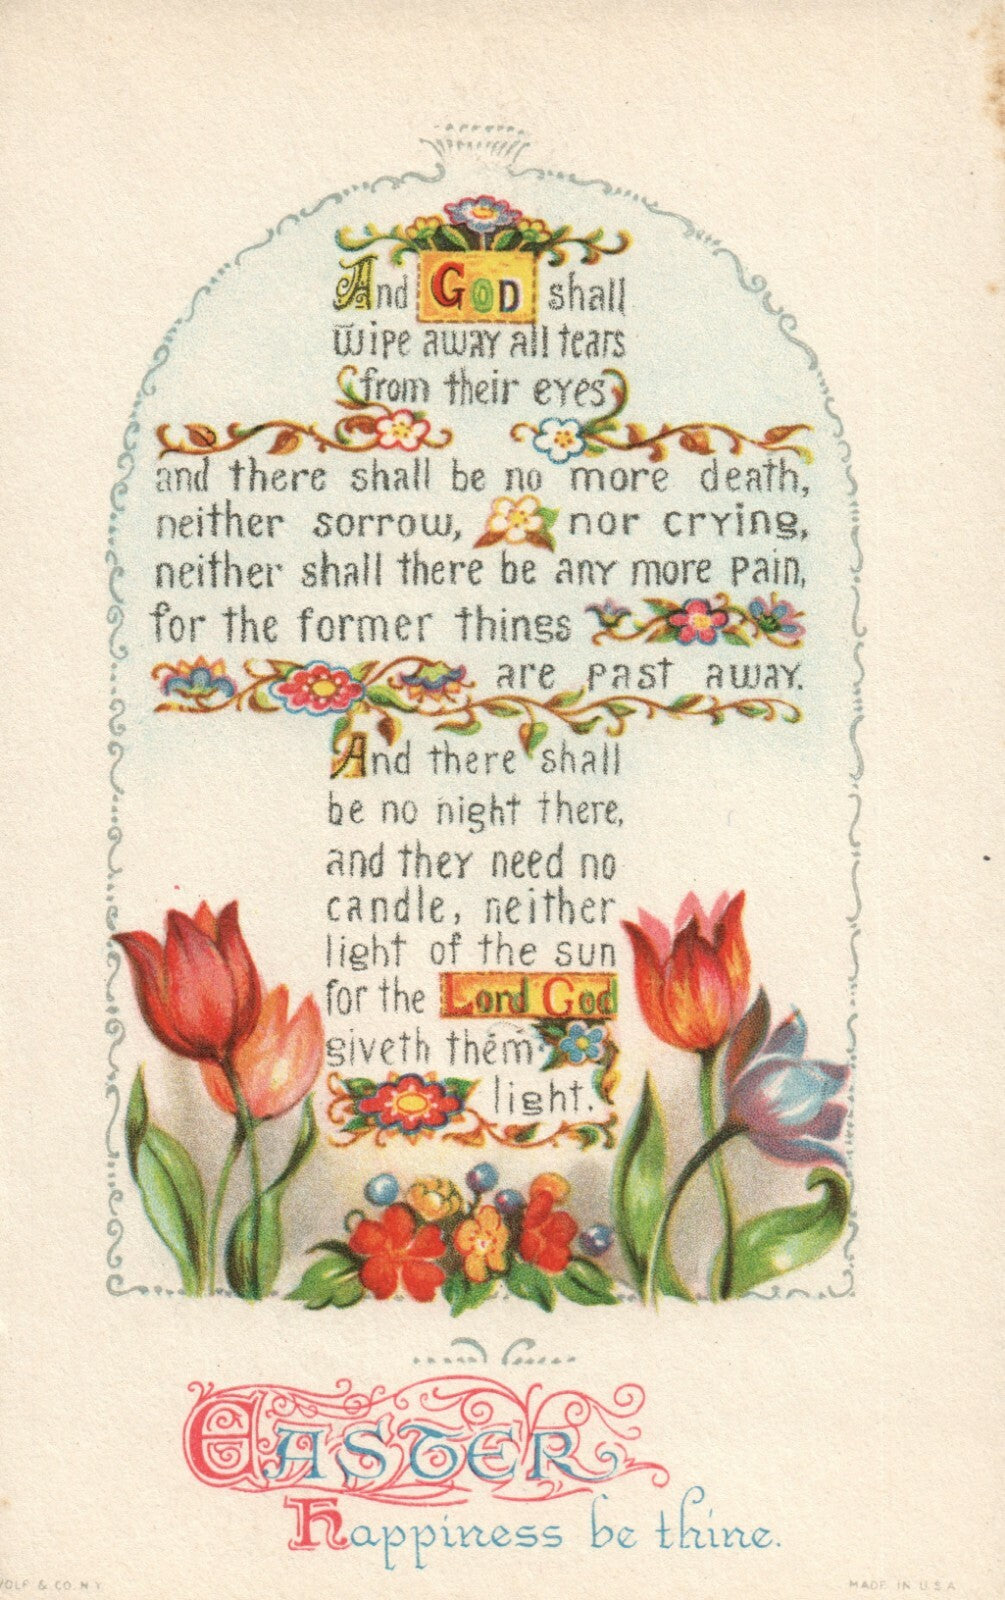 And GOD shall
wipe away all tears
from their eyes
and there shall be no more death,
neither sorrow, nor crying,
neither shall there be any more pain,
for the former things
are past away.
And there shall
be no night there,
and they need no
candle, neither
light of the sun
for the Lord God
giveth them
light.
EASTER
Happiness be thine.
WOLF & CO. N Y
MADE IN U.S.A